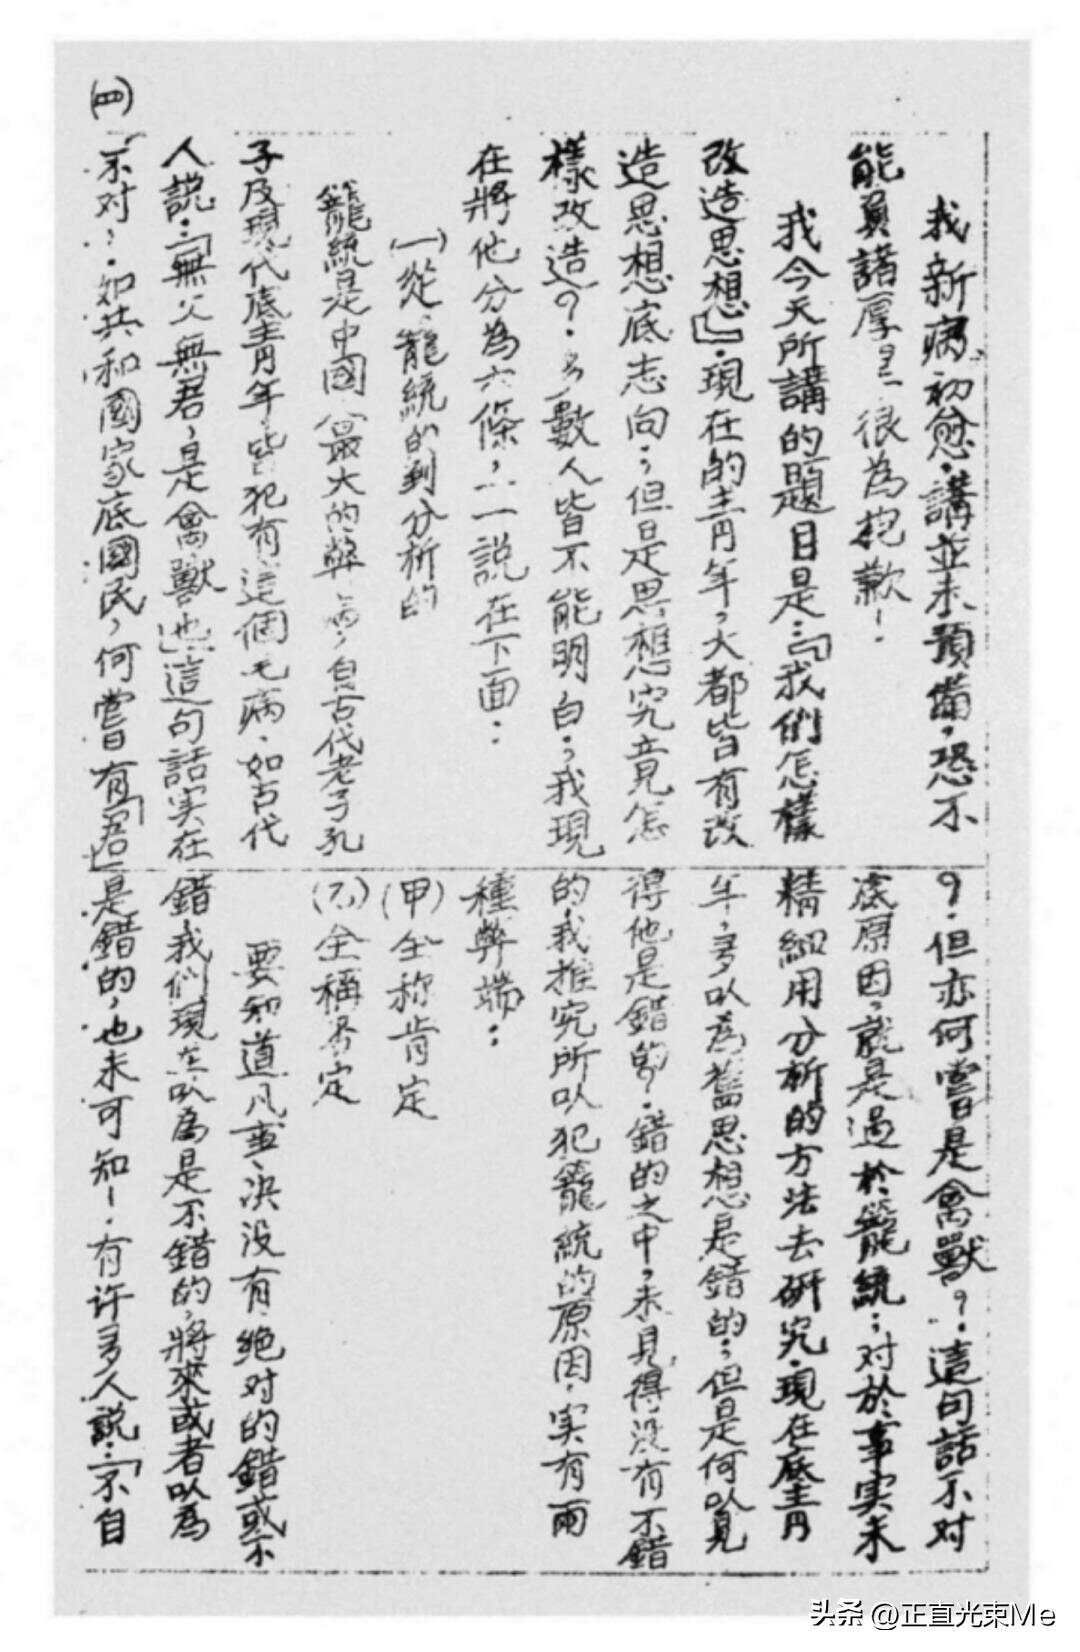 我新病初愈,講並未預備,恐不
能負諸厚望,很為抱歉!.
我今天所講的題目是:.「我們怎樣
改造思想」.現在的青年,大都皆有改
造思想底志向;.但是思想究竟怎
樣改造?.多數人皆不能明白.;我現
在將他分為六條,一一說在下面:.
(一)從籠統的到分析的
籠統是中國最大的弊病,自古代老子孔
子及現代底青年,皆犯有這個毛病.如古代
人説:.「無父無君,是禽獸也」.這句話实在
不对:.如共和國家底國民,何嘗有「君」
?.但亦何嘗是禽獸?.這句話不对
底原因,就是過於籠統;.对於事实未
精細用分析的方法去研究.現在底青
年,多以為舊思想是錯的;.但是何以見
得他是錯的?.錯的之中,未見得没有不錯
的.我推究所以犯籠統的原因,实有兩
種弊端:.
(甲)全称肯定
(乙)全稱否定
要知道凡事,决没有绝对的錯或不
錯.我們現在以為是不錯的,將來或者以為
是錯的,也未可知!.有许多人説:.「不自
(四)
头条 @正直光束Me